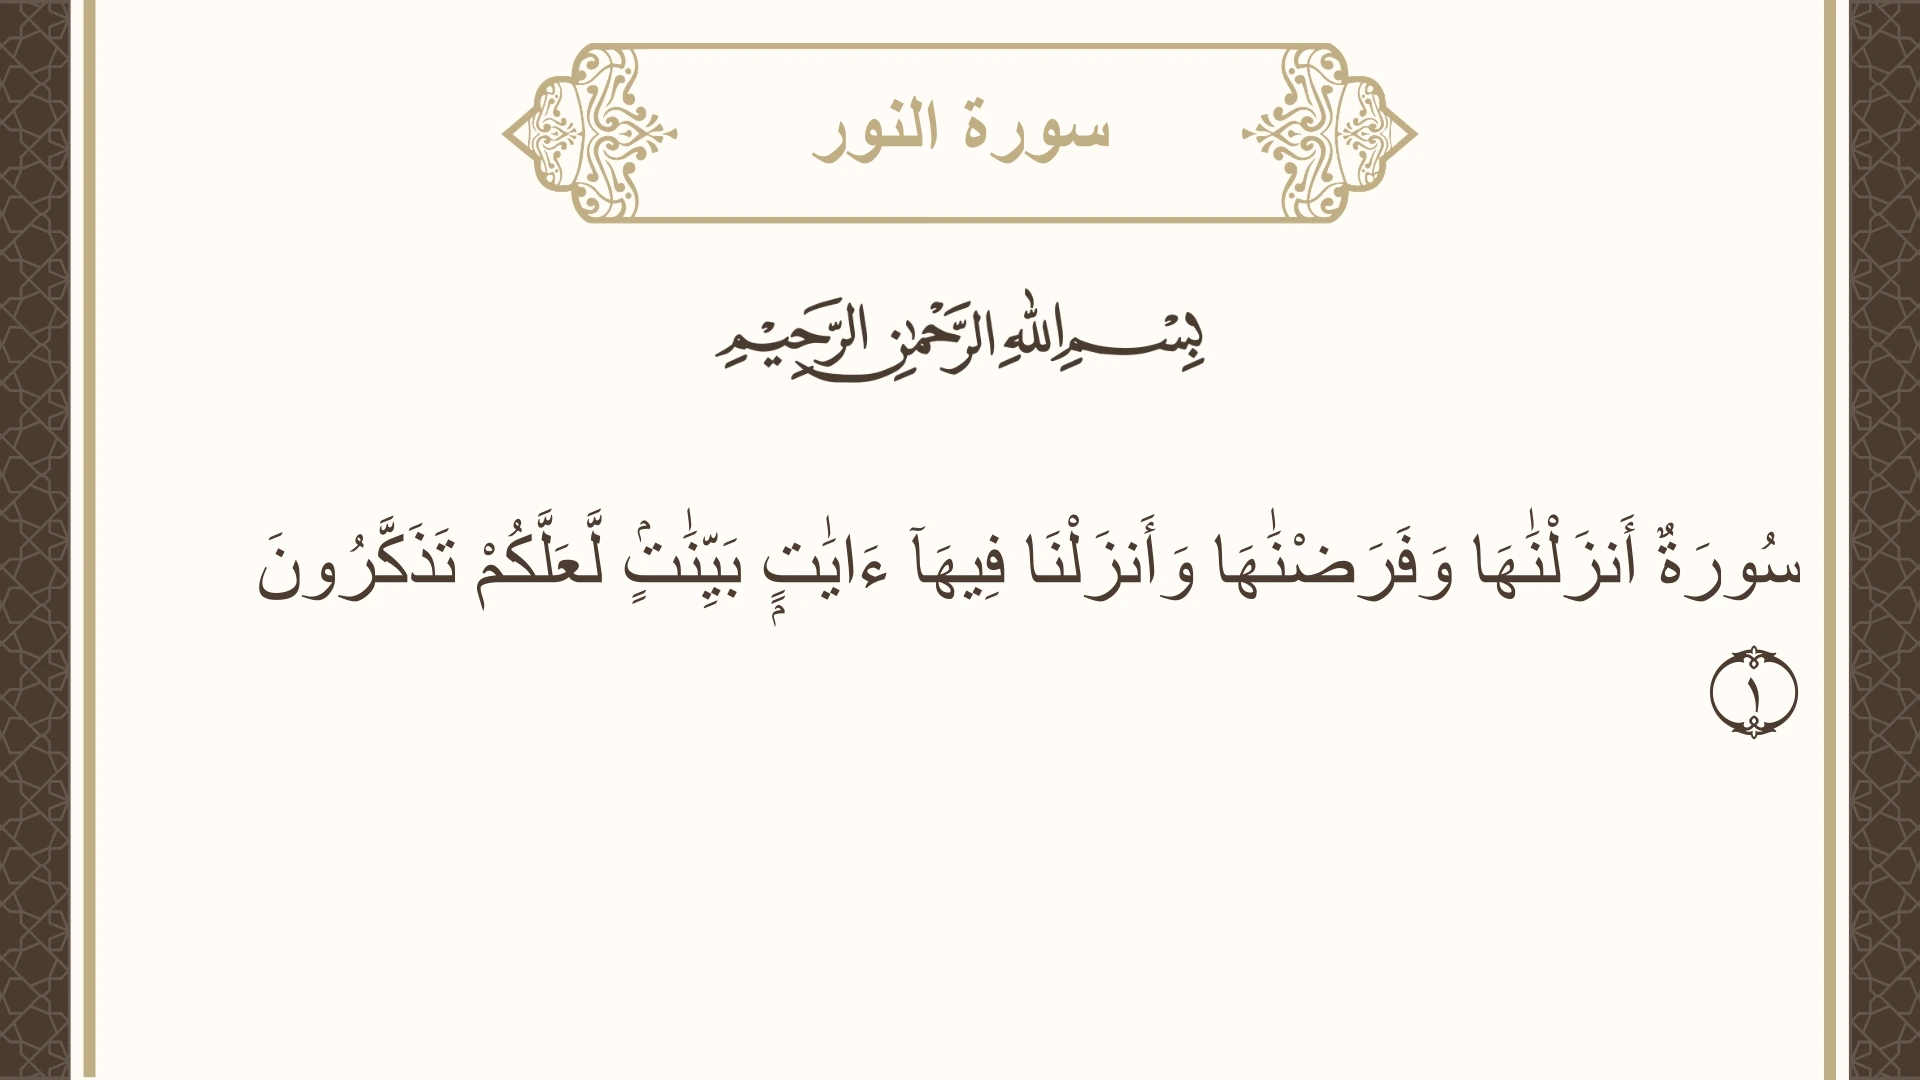 سورة النور
بِسْمِ اللهِ الرَّحْمٰنِ الرَّحِيْمِ
سُورَةٌ أَنزَلْنَٰهَا وَفَرَضْنَٰهَا وَأَنزَلْنَا فِيهَآ ءَايَٰتٍۭ بَيِّنَٰتٍۢ لَّعَلَّكُمْ تَذَكَّرُونَ
١